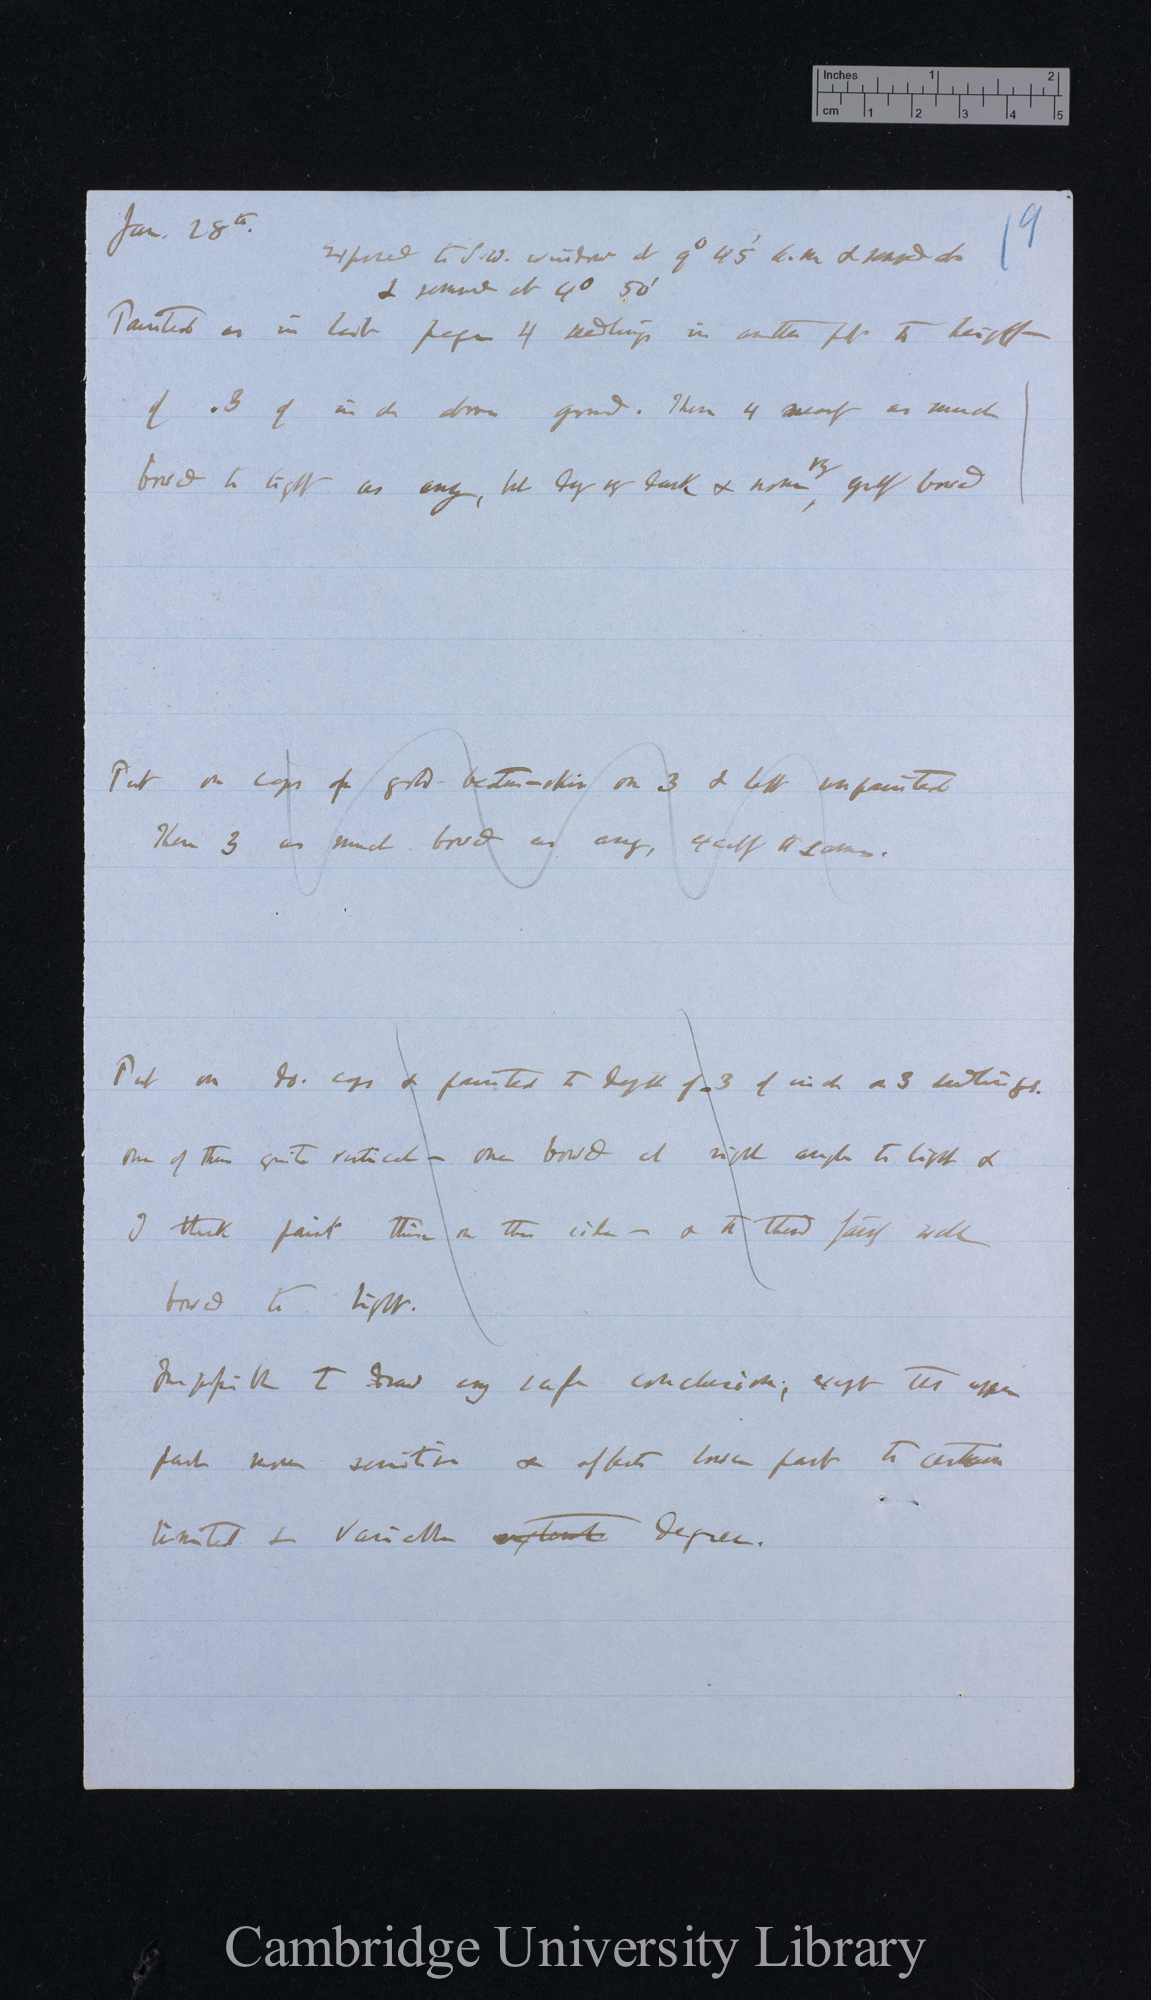 Inches 1 2
cm 1 2 3 4 5
19
Jan. 28th.
Exposed to S.W. window at 9° 45' a.m &
& removed at 4° 50'
Painted as in last page 4 seedlings in another pot to height
of .3 of inch above ground. These 4 as much
bowed to light as any, but day dark & none very, bowed
Put on caps of gold-beaters-skin on 3 & left unpainted
These 3 as much bowed as any, exactly the same.
Put on do. caps & painted to depth of .3 of inch on 3 seedlings.
one of them quite vertical — one bowed at right angle to light &
I think paint thin on this side — & the third fairly well
bowed to light.
Impossible to draw any safe conclusion; except that upper
part more sensitive & affects lower part to certain
limited & variable extent degree.
Cambridge University Library